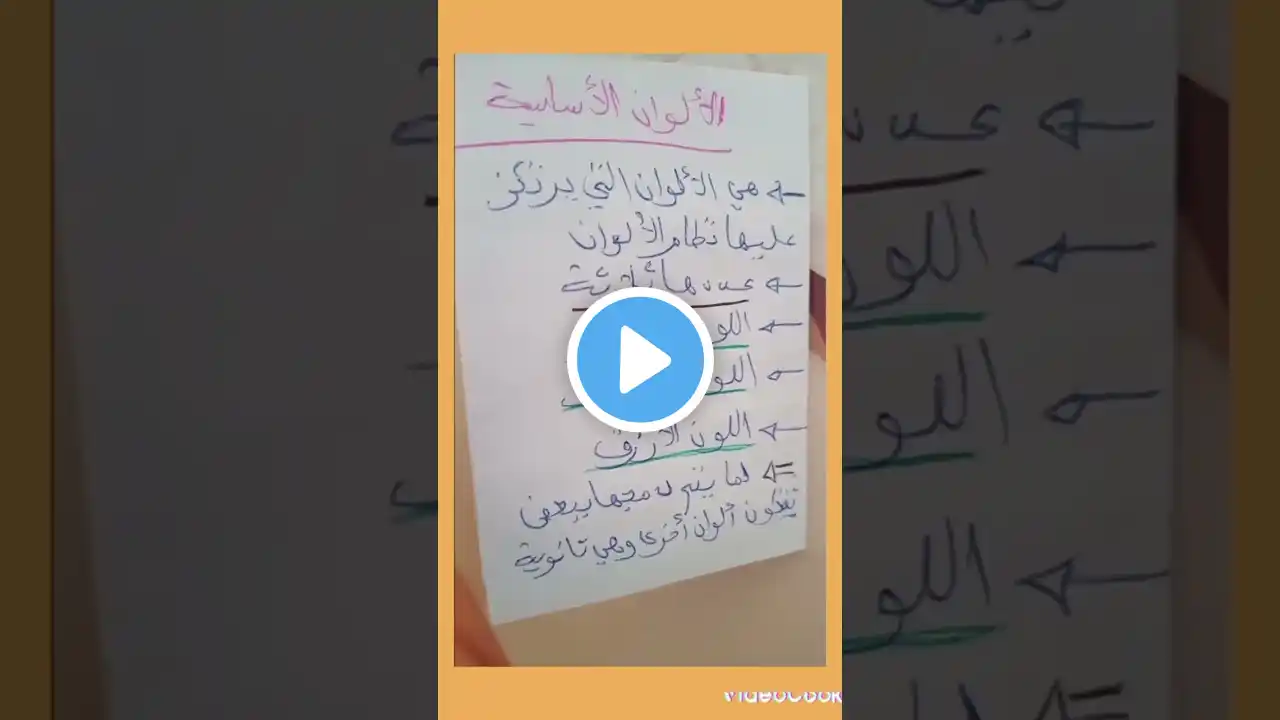 الألوان الأساسية
هي الألوان التي يرتكز
عليها نظام الألوان
عددها ثلاثة
اللو
اللو
اللون الأزرق
لما يتم دمجها ببعض
تتكون ألوان أخرى وهي ثانوية
VideoCook